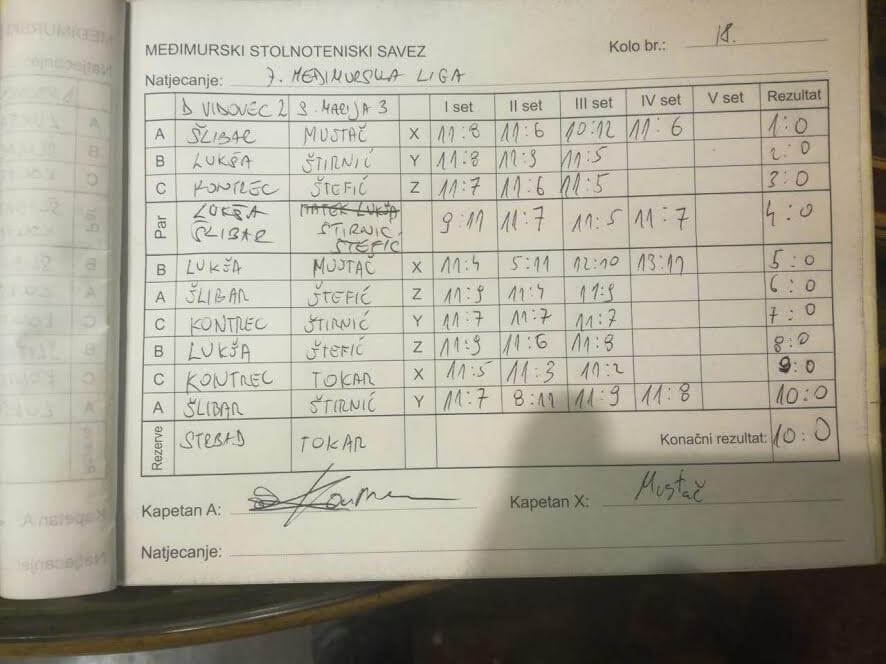 MEĐIMURSKI STOLNOTENISKI SAVEZ Kolo br.: 18.
Natjecanje: 7. MEĐIMURSKA LIGA
D VIDOVEC 2 S. MARIJA 3 I set II set III set IV set V set Rezultat
A ŠLIBAR MUSTAČ X 11:8 11:6 10:12 11:6 1:0
B LUKŠA ŠTIRNIĆ Y 11:8 11:9 11:5 2:0
C KONTREC ŠTEFIĆ Z 11:7 11:6 11:5 3:0
Par LUKŠA MATEK LUKŠA 9:11 11:7 11:5 11:7 4:0
ŠLIBAR ŠTIRNIĆ
ŠTEFIĆ
B LUKŠA MUSTAČ X 11:4 5:11 12:10 13:11 5:0
A ŠLIBAR ŠTEFIĆ Z 11:9 11:4 11:9 6:0
C KONTREC ŠTIRNIĆ Y 11:7 11:7 11:7 7:0
B LUKŠA ŠTEFIĆ Z 11:9 11:6 11:8 8:0
C KONTREC TOKAR X 11:5 11:3 11:2 9:0
A ŠLIBAR ŠTIRNIĆ Y 11:7 8:11 11:9 11:8 10:0
Rezerve STRBAD TOKAR Konačni rezultat: 10:0
Kapetan A: Kapetan X: Mustač
Natjecanje: